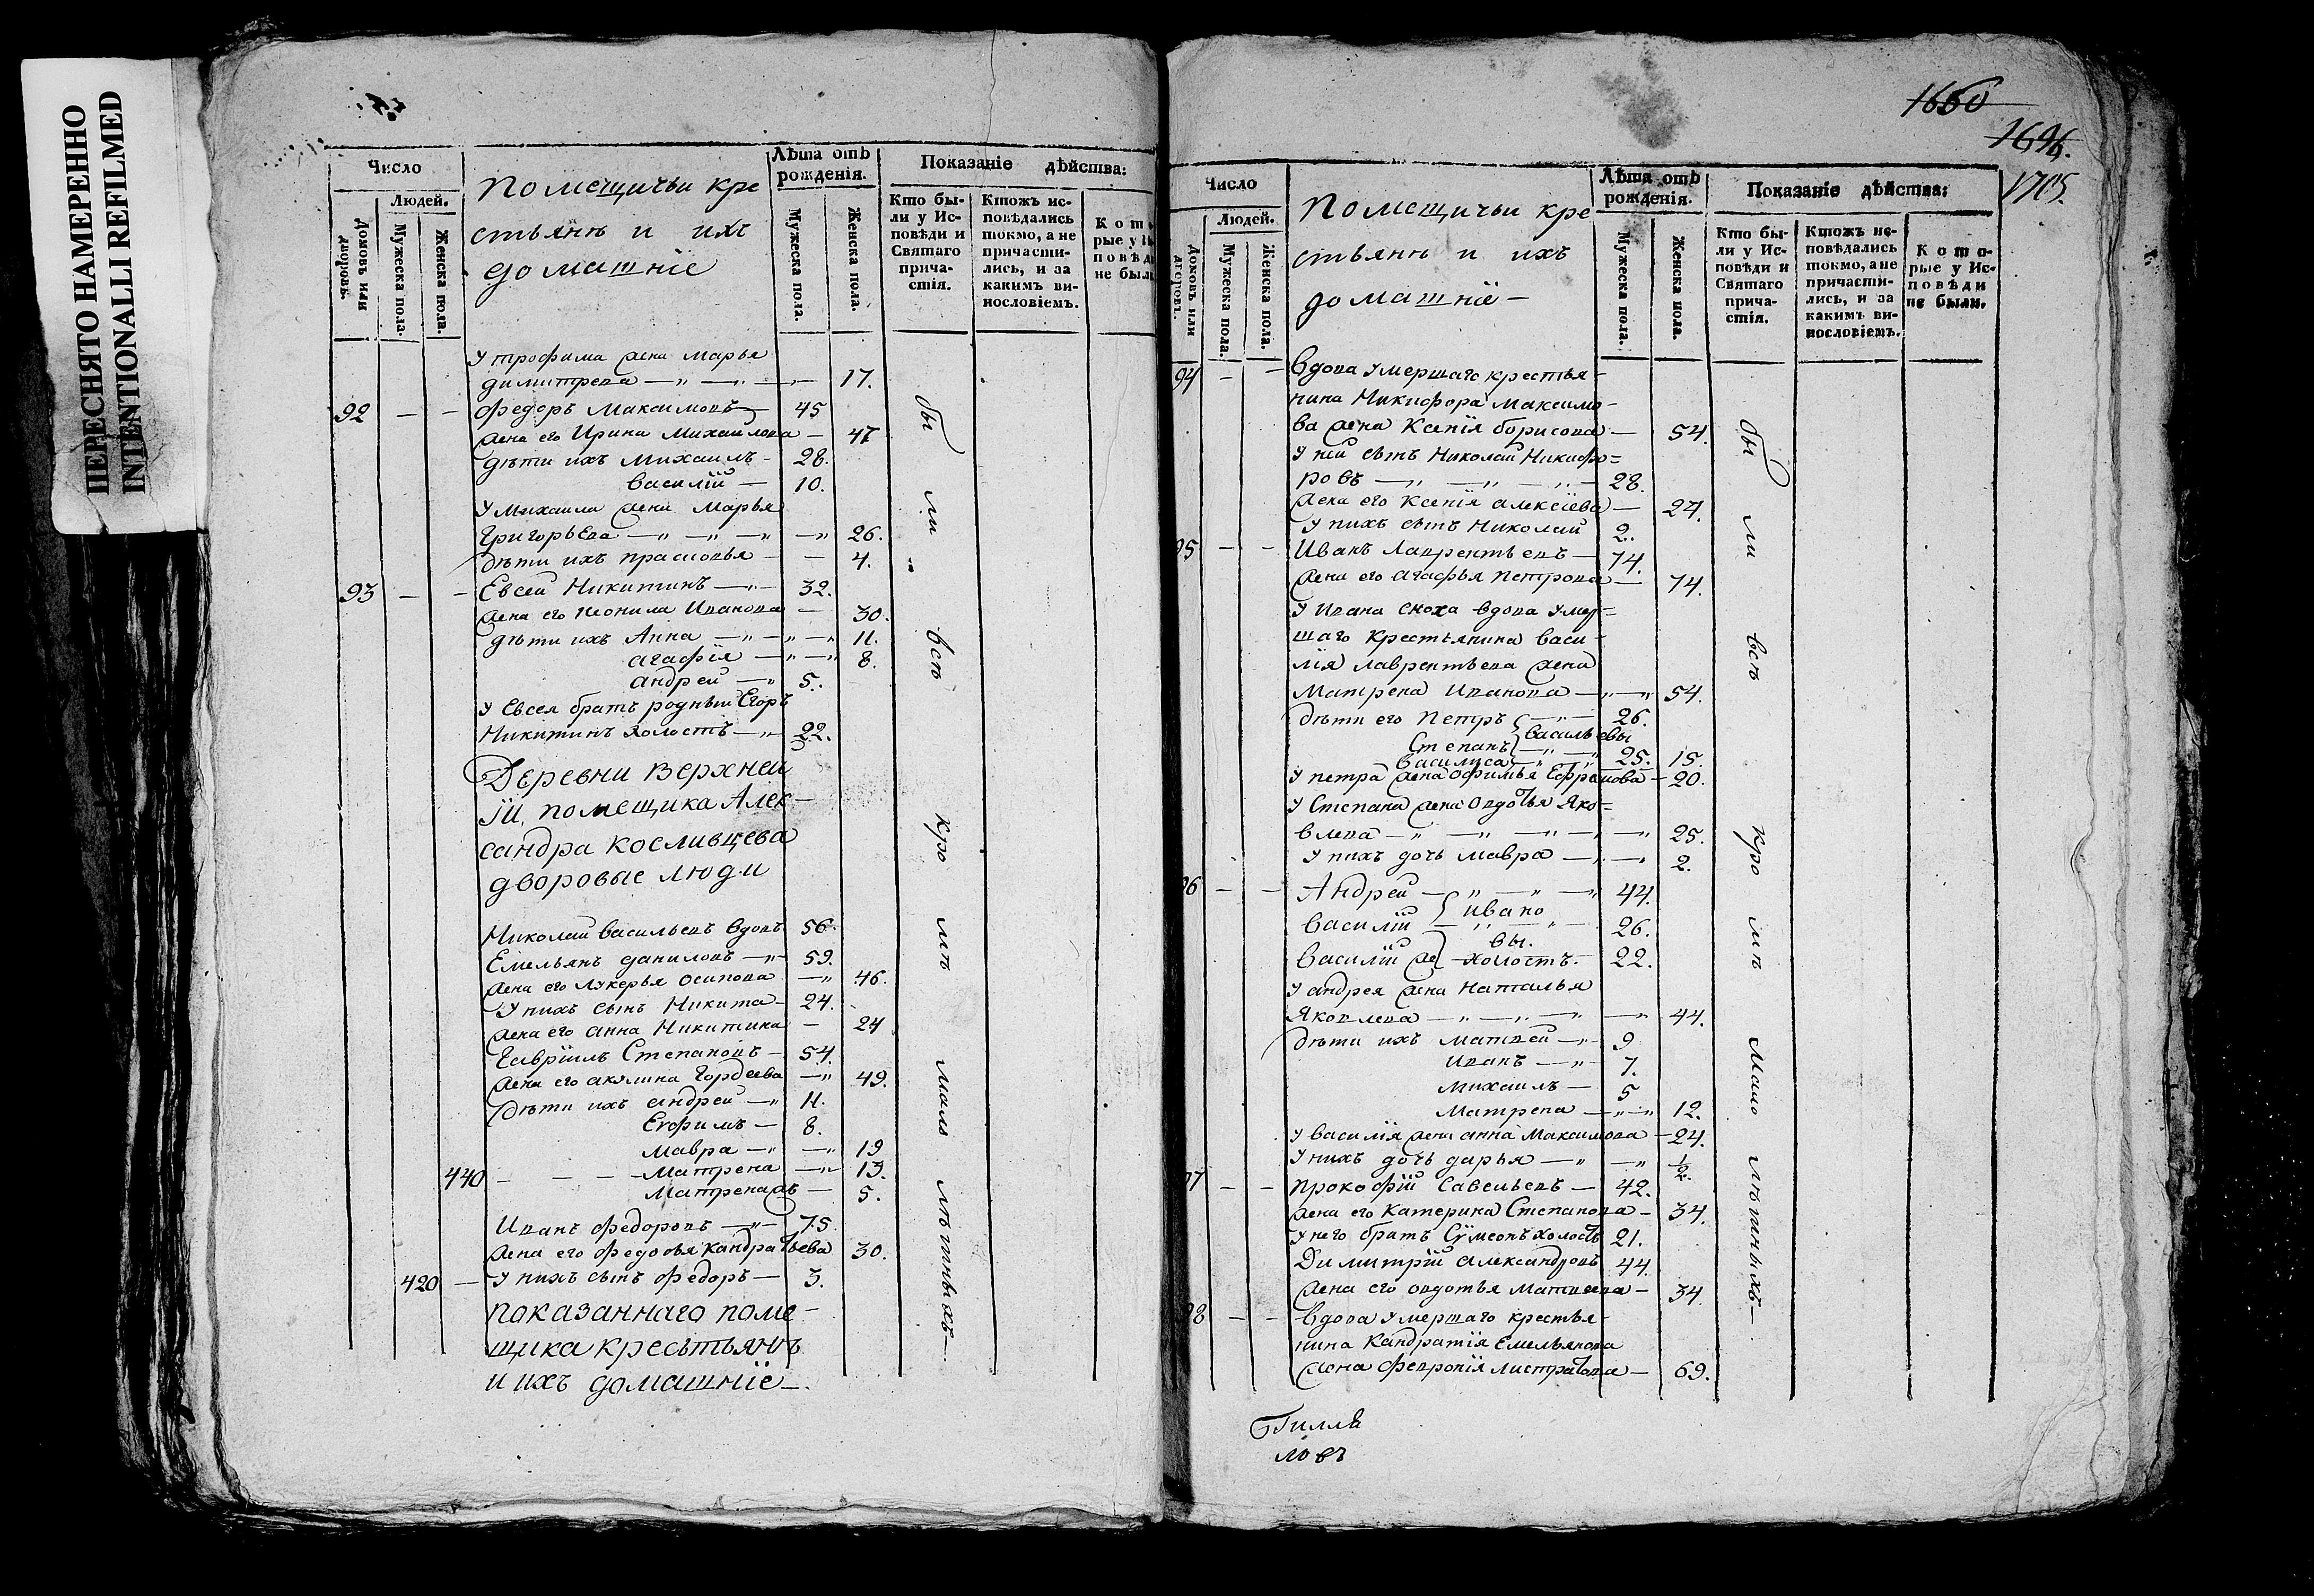 ПЕРЕСНЯТО НАМЕРЕННО
INTENTIONALLI REFILMED
Число
Людей.
Домовъ или дворовъ.
Мужеска пола.
Женска пола.
Помещичьи кре
стьянъ и ихъ
домашніе
Лѣта отъ рожденія.
Мужеска пола.
Женска пола.
Показаніе дѣйства:
Кто бы-
ли у Ис-
повѣди и
Святаго
прича-
стія.
Ктожъ ис-
повѣдались
токмо, а не
причасти-
лись, и за
какимъ ви-
нословіемъ.
Кото
рые у И
повѣд
не был
У трофима жена Марья
димитрева — 17.
92 — — федоръ Максимовъ — 45
жена его Ирина Михаилова — 47
дѣти ихъ Михаилъ — 28.
василій — 10.
У Михаила жена Марья
Григорьева — 26.
дѣти ихъ прасковья — 4.
93 — — Евсей Никитинъ — 32.
жена его Неонила Иванова — 30.
дѣти ихъ Анна — 11.
агафія — 8.
андрей — 5.
У Евсея братъ родный Егоръ
Никитинъ холостъ — 22.
Деревни верхней
помещика Алек-
сандра косливцева
дворовые люди
Николай васильевъ вдовъ 56.
Емельянъ даниловъ — 59.
жена его лукерья осипова — 46.
У нихъ сынъ Никита — 24.
жена его анна Никитина — 24
Гаврiилъ Степановъ — 54.
жена его акулина Гордеева — 49.
дѣти ихъ андрей — 11.
Ефимъ — 8.
мавра — 19
440 — — — Матрена — 13.
Матренажъ — 5.
Иванъ федоровъ — 75.
жена его федосья кандратьева 30.
420 — У нихъ сынъ федоръ — 3.
показаннаго поме-
щика крестьянъ
и ихъ домашніе —.
бы
ли
всѣ
кро
мѣ
мало
лѣтныхъ —
1660
1696.
1705.
Число
Людей.
Домовъ или дворовъ.
Мужеска пола.
Женска пола.
Помещичьи кре
стьянъ и ихъ
домашніе —
Лѣта отъ рожденія.
Мужеска пола.
Женска пола.
Показаніе дѣйства:
Кто бы-
ли у Ис-
повѣди и
Святаго
прича-
стія.
Ктожъ ис-
повѣдались
токмо, а не
причасти-
лись, и за
какимъ ви-
нословіемъ.
Кото-
рые у Ис-
повѣди
не были.
94 — — вдова умершаго крестья-
нина Никифора Максимо-
ва жена Ксенія борисова — 54.
У ней сынъ Николай Никифо=
ровъ — 28.
жена его Ксенія алексіева — 24.
У нихъ сынъ Николай 2.
95 — — Иванъ Лаврентьевъ — 74.
жена его агафья петрова — 74.
У Ивана сноха вдова умер=
шаго крестьянина васи-
лія лаврентьева жена
Матрена Иванова — 54.
дѣти его петръ — 26.
Степанъ васильевы 25.
василиса — 15.
У петра жена офимья Ефремова — 20.
У Степана жена овдотья яко=
влева — 25.
У нихъ дочь мавра — 2.
96 — — Андрей — 44.
василій ивано 26.
вы.
василій же холостъ. — 22.
У андрея жена наталья
Яковлева — 44.
дѣти ихъ матвей — 9
иванъ — 7.
михаилъ — 5
матрена — 12.
У василія жена анна Максимова — 24.
У нихъ дочь дарья — 1/2.
97 — — прокофій савельевъ — 42.
жена его Катерина Степанова — 34.
У него братъ Сумеонъ холостъ 21.
Димитрій александровъ 44.
жена его овдотья Матвеева — 34.
98 — — вдова умершаго крестья-
нина Кандратія Емельянова
жена феврония листратова — 69.
бы
ли
всѣ
кро
мѣ
мало
лѣтныхъ —